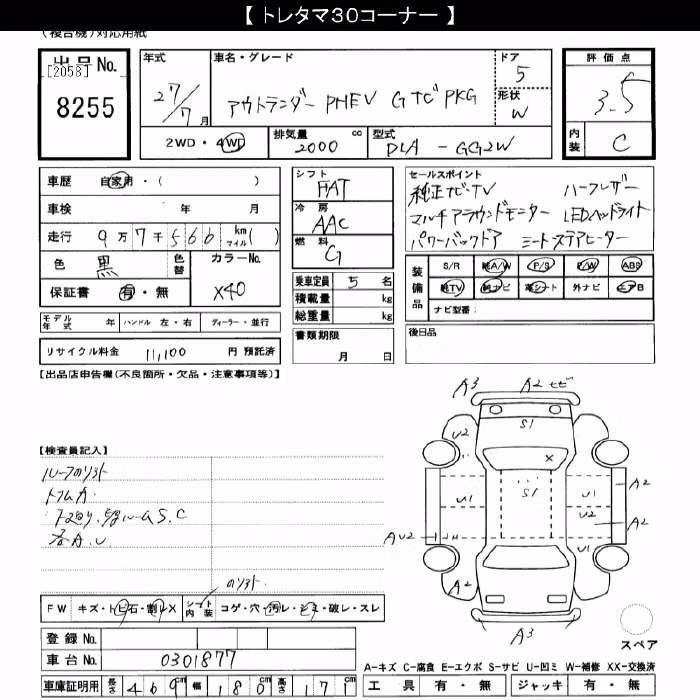 【 トレタマ30コーナー 】
(複合機)対応用紙
出品No.
[2058]
8255
年式
27/7月
車名・グレード
アウトランダー PHEV G TビPKG
ドア
5
形状
W
評価点
3.5
内装
C
2WD・4WD
排気量 2000 cc
型式
DLA - GG2W
車歴 自家用・( )
車検 年 月
走行 9万7千566 km マイル( )
色 黒 色替
カラーNo.
X40
保証書 有・無
シフト
FAT
冷房
AAC
燃料
G
乗車定員 5 名
積載量 kg
総重量 kg
セールスポイント
純正ナビ・TV ハーフレザー
マルチアラウンドモニター LEDヘッドライト
パワーバックドア シートステアヒーター
装備品
S/R 純A/W P/S P/W ABS
純TV 純ナビ 革シート 外ナビ エアB
ナビ型番:
モデル年式 年 ハンドル 左・右 ディーラー・並行
書類期限
月 日
後日品
リサイクル料金 11,100 円 預託済
【出品店申告欄(不良箇所・欠品・注意事項等)】
【検査員記入】
A3 A2
S1
U2
U2
X
U1 S1 U1 A2
U2 A2
AU2
A2
A2
A3
スペア
FW キズ・トビ石・割レX
シート内装 コゲ・穴・汚レ・シミ・破レ・スレ
登録No.
車台No. 0301877
A-キズ C-腐食 E-エクボ S-サビ U-凹ミ W-補修 XX-交換済
車庫証明用 長さ 469cm 幅 180cm 高さ 171cm
工具 有・無 ジャッキ 有・無